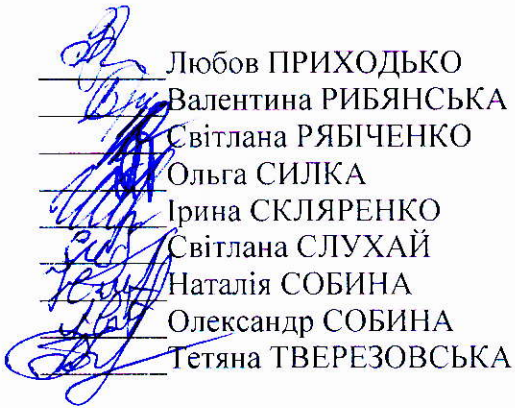 Любов ПРИХОДЬКО
Валентина РИБЯНСЬКА
Світлана РЯБІЧЕНКО
Ольга СИЛКА
Ірина СКЛЯРЕНКО
Світлана СЛУХАЙ
Наталія СОБИНА
Олександр СОБИНА
Тетяна ТВЕРЕЗОВСЬКА